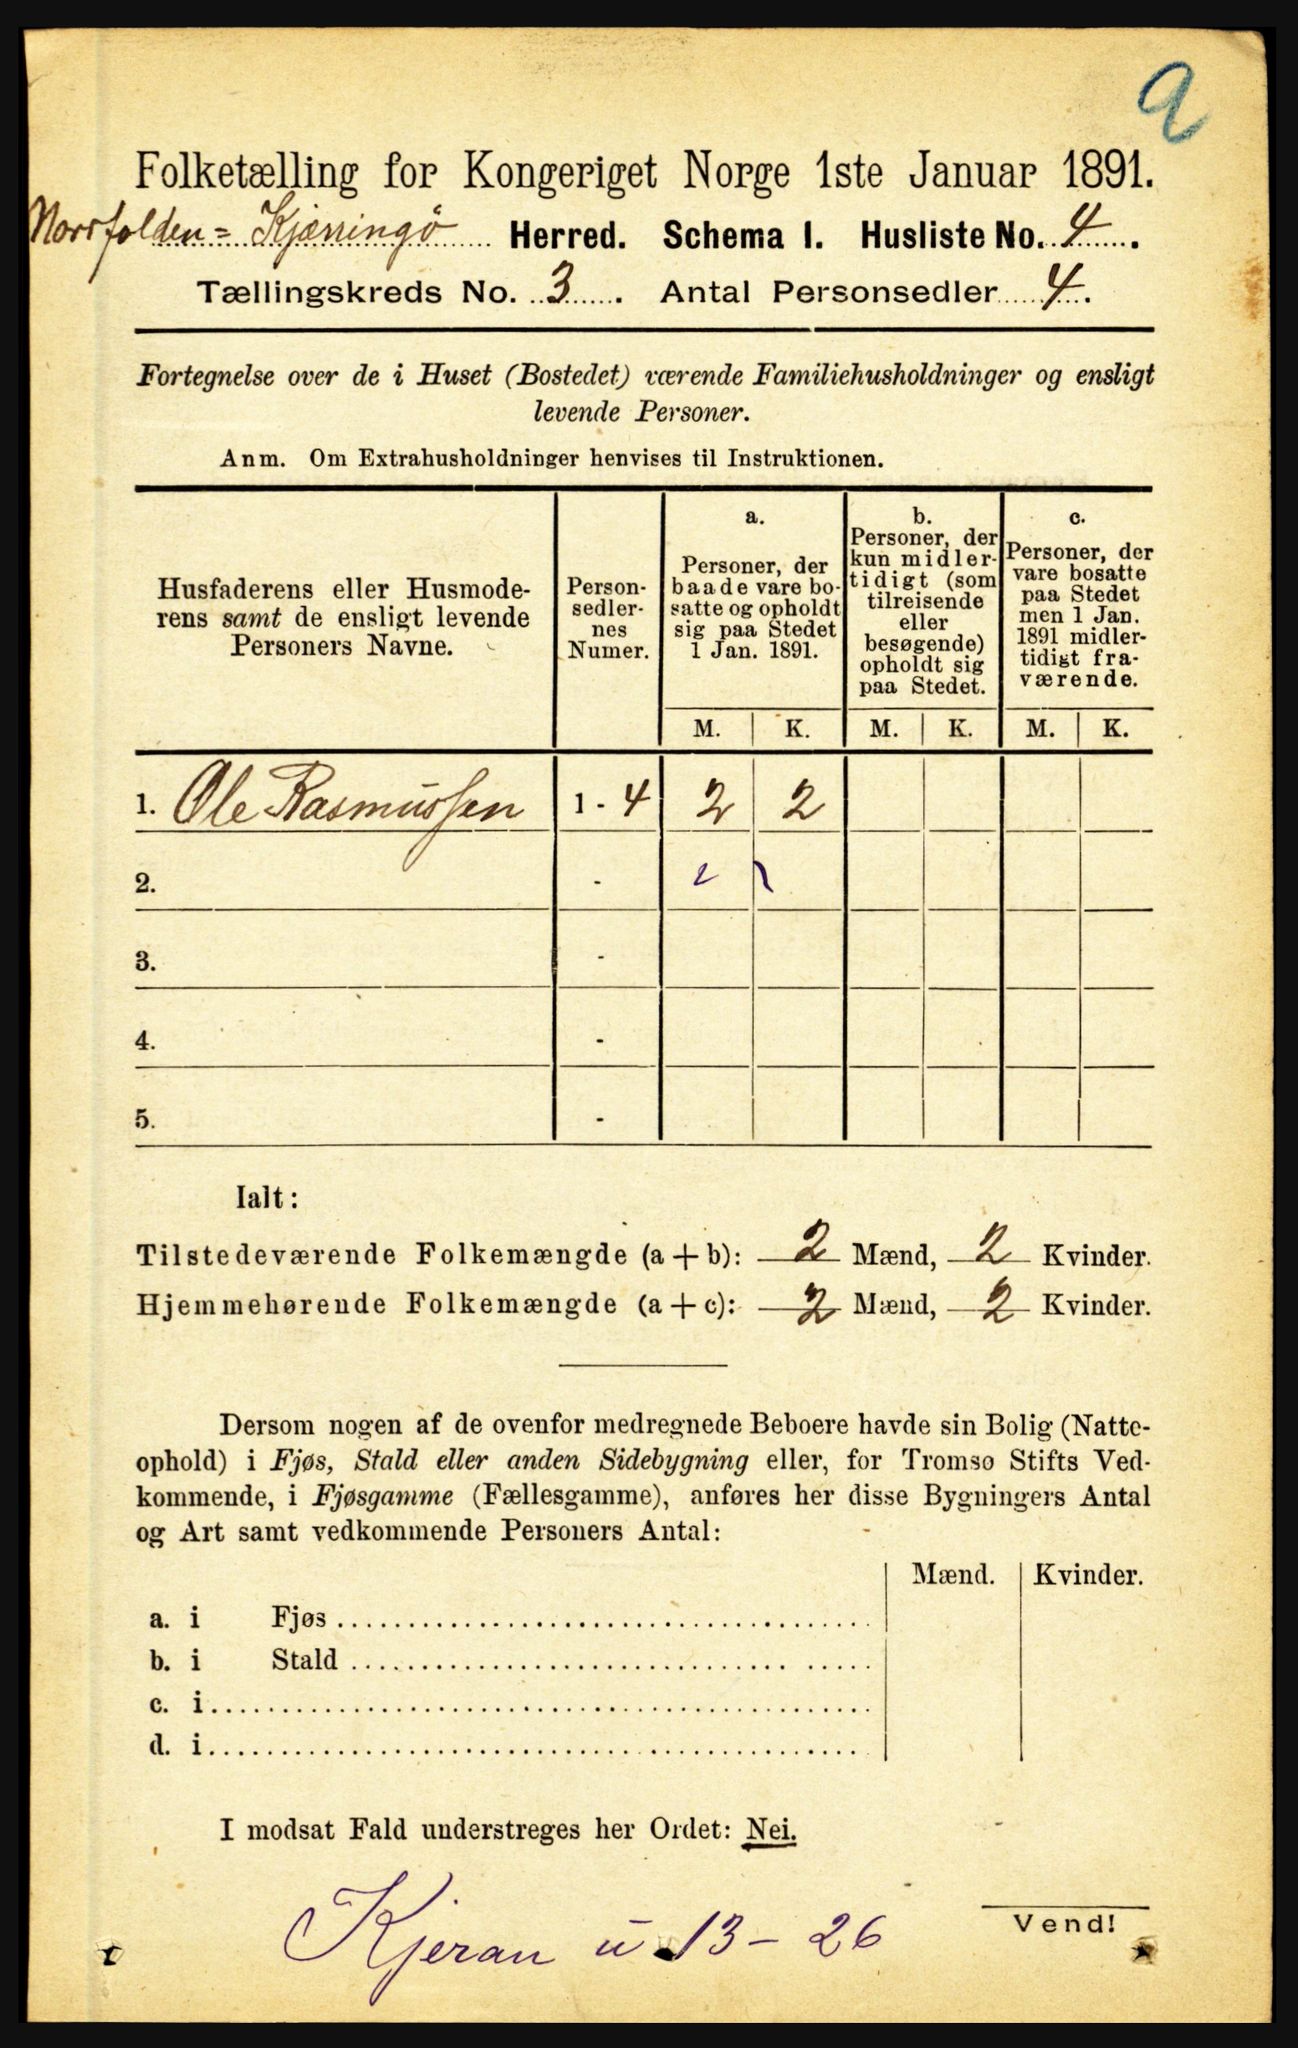 9
Folketælling for Kongeriget Norge 1ste Januar 1891.
Norrfolden = Kjærringø Herred. Schema I. Husliste No. 4.
Tællingskreds No. 3. Antal Personsedler 4.
Fortegnelse over de i Huset (Bostedet) værende Familiehusholdninger og ensligt
levende Personer.
Anm. Om Extrahusholdninger henvises til Instruktionen.
Husfaderens eller Husmode-
rens samt de ensligt levende
Personers Navne.
Person-
sedler-
nes
Numer.
a.
Personer, der
baade vare bo-
satte og opholdt
sig paa Stedet
1 Jan. 1891.
b.
Personer, der
kun midler-
tidigt (som
tilreisende
eller
besøgende)
opholdt sig
paa Stedet.
c.
Personer, der
vare bosatte
paa Stedet
men 1 Jan.
1891 midler-
tidigt fra-
værende.
M. K. M. K. M. K.
1. Ole Rasmussen 1 - 4 2 2
2. - 2 2
3. -
4. -
5. -
Ialt:
Tilstedeværende Folkemængde (a + b): 2 Mænd, 2 Kvinder.
Hjemmehørende Folkemængde (a + c): 2 Mænd, 2 Kvinder.
Dersom nogen af de ovenfor medregnede Beboere havde sin Bolig (Natte-
ophold) i Fjøs, Stald eller anden Sidebygning eller, for Tromsø Stifts Ved-
kommende, i Fjøsgamme (Fællesgamme), anføres her disse Bygningers Antal
og Art samt vedkommende Personers Antal:
Mænd. Kvinder.
a. i Fjøs
b. i Stald
c. i
d. i
I modsat Fald understreges her Ordet: Nei.
Kjeran u 13 - 26
Vend!